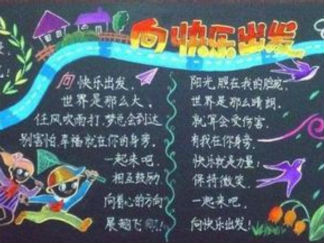 向快乐出发
向快乐出发,
世界是那么大,
任风吹雨打,梦也会到达
别害怕,幸福就在你的身旁,
一起来吧,
相互鼓励
向着心的方向
展翅飞翔!
阳光,照在我的脸庞,
世界是那么晴朗,
就算会受伤害,
有我在你身旁,
快乐就是力量!
保持微笑,
一起来吧,
向快乐出发!